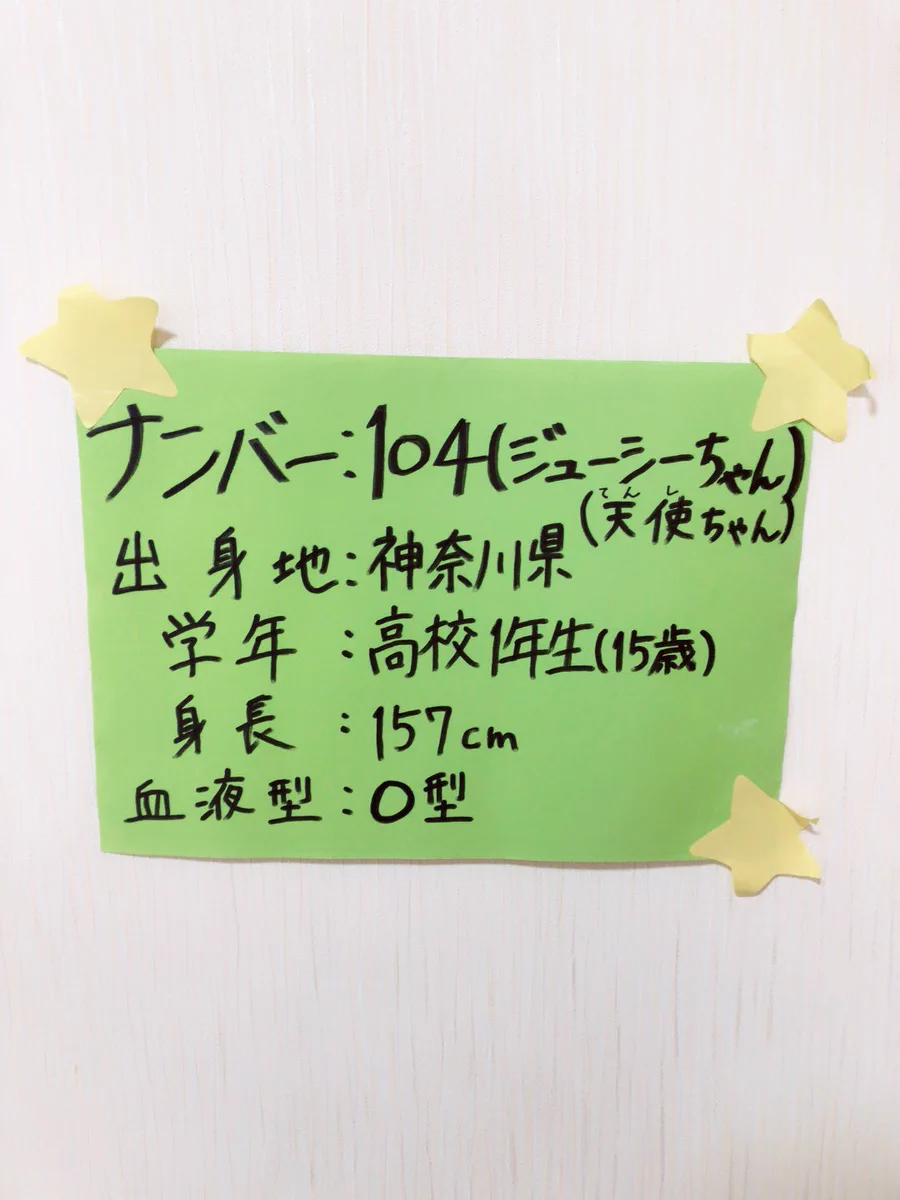 ナンバー:104(ジューシーちゃん)
(天使ちゃん)
てんし
出身地:神奈川県
学年:高校1年生(15歳)
身長:157cm
血液型:O型